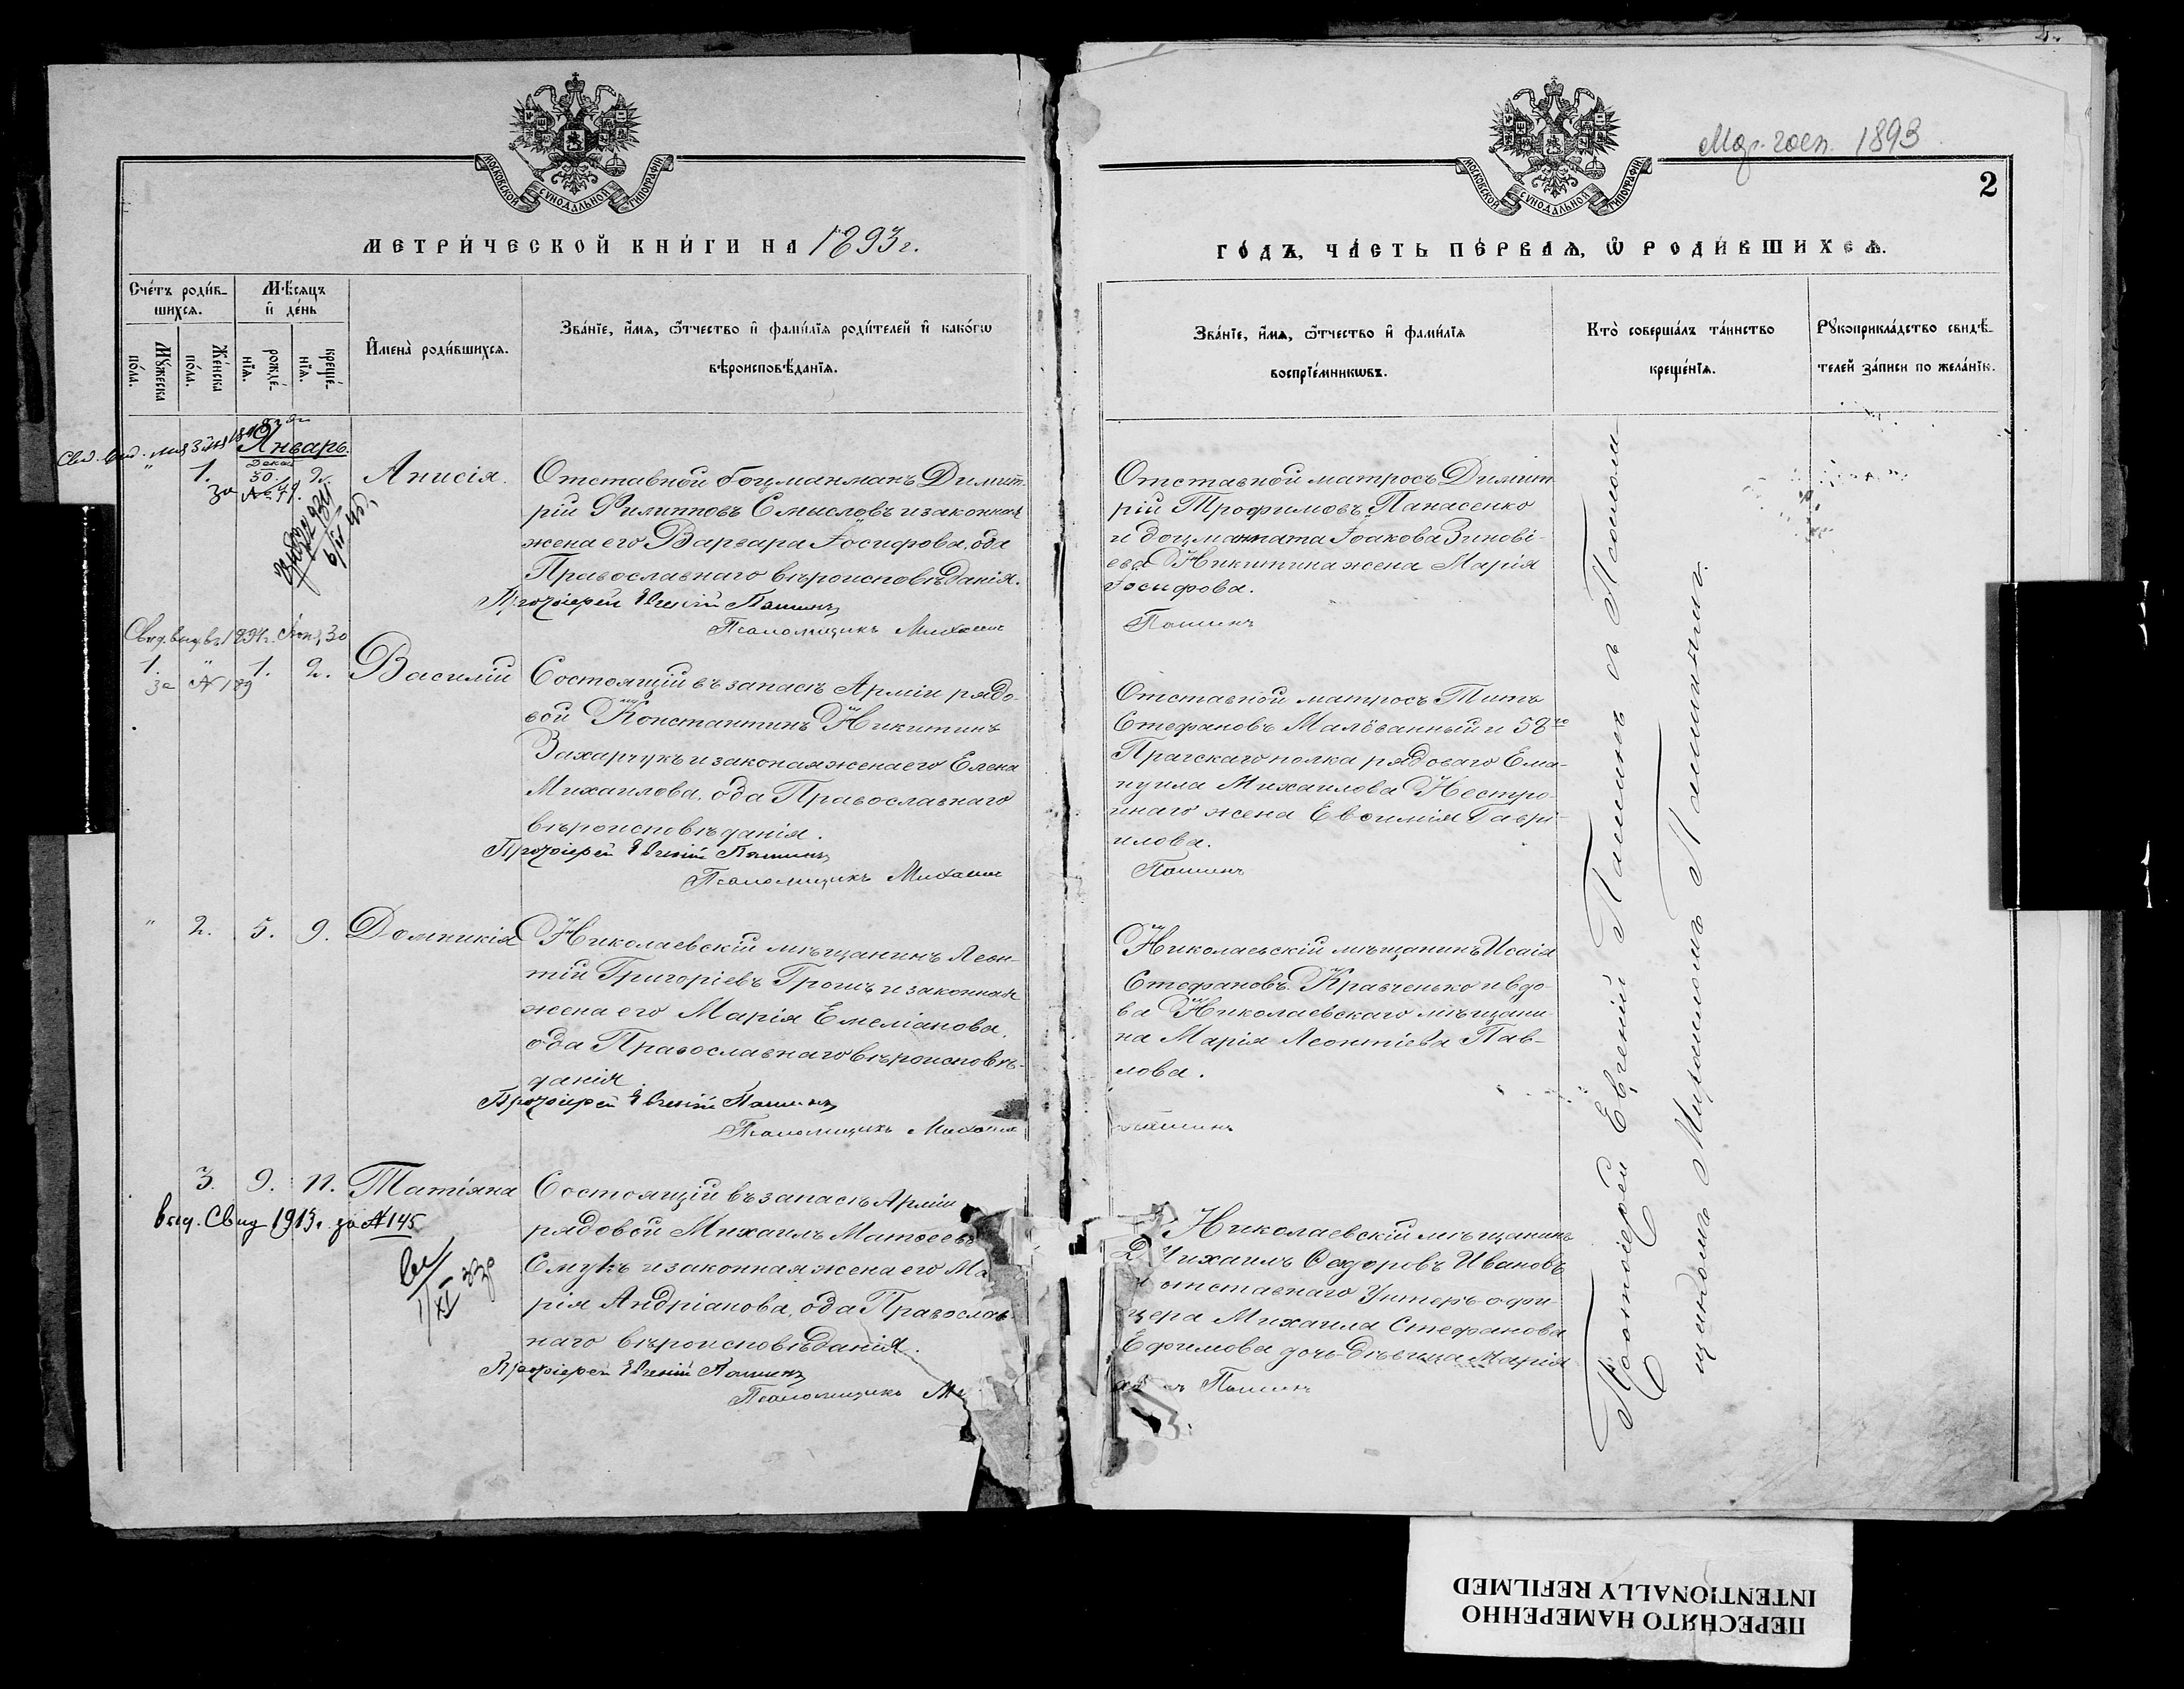 МОСКОВСКОЙ СУНОДАЛЬНОЙ ТИПОГРАФІИ
МЕТРИ́ЧЕСКОЙ КНИ́ГИ НА 1893 г.
Сче́тъ роди́в-
шихсѧ.
Мѣ́сѧцъ
и҆ де́нь
Мꙋ́жеска
по́ла.
Же́нска
по́ла.
рожде́-
нїѧ.
креще́-
нїѧ.
И҆мена̀ роди́вшихсѧ.
Зва́нїе, и҆́мѧ, ѻ҆́тчество и҆ фами́лїѧ роди́телей и҆ како́гѡ
вѣроисповѣ́данїѧ.
Январь.
1. Декаб 30. 2. Анисія.
Отставной боцманматъ Димит-
рій Филипповъ Смысловъ и законная
жена его Варвара Іосифова, оба
Православнаго вѣроисповѣданія.
Протоіерей Евгеній Пашинъ
Псаломщикъ Михаилъ
Свид. выд. въ 1894 г. 30
за № 189
1. " 1. 2. Василій
Состоящій въ запасѣ Арміи рядо-
вой Константинъ Никитинъ
Захарчукъ и законая жена его Елена
Михаилова, оба Православнаго
вѣроисповѣданія.
Протоіерей Евгеній Пашинъ
Псаломщикъ Михаилъ
" 2. 5. 9. Домникія
Николаевскій мѣщанинъ Леон-
тій Григоріевъ Грошъ и законная
жена его Марія Емеліанова,
оба Православнаго вѣроисповѣ-
данія
Протоіерей Евгеній Пашинъ
Псаломщикъ Михаилъ
3. 9. 11. Татіяна
выд. Свид 1913 г. за № 145
Состоящій въ запасѣ Арміи
рядовой Михаилъ Матѳеевъ
Смукъ и законная жена его Ма-
рія Андріанова, оба Православ-
наго вѣроисповѣданія.
Протоіерей Евгеній Пашинъ
Псаломщикъ Ми
МОСКОВСКОЙ СУНОДАЛЬНОЙ ТИПОГРАФІИ
госп. 1893
2
ГО́ДЪ, ЧА́СТЬ ПЕ́РВАѦ, Ѡ҆ РОДИ́ВШИХСѦ.
Зва́нїе, и҆́мѧ, ѻ҆́тчество и҆ фами́лїѧ
воспрїе́мникѡвъ.
Кто̀ соверша́лъ та́инство
креще́нїѧ.
Рꙋкоприкла́дство свидѣ́-
телей за́писи по жела́нїю.
Отставной матросъ Димит-
рій Трофимовъ Панасенко
и боцманмата Іоакова Зиновіе-
ева Никитина жена Марія
Іосифова.
Пашинъ
Отставной матросъ Титъ
Стефановъ Малёванный и 58го
Прагскаго полка рядоваго Ема-
нуила Михаилова Нестро-
инаго жена Евѳимія Гаврі-
илова.
Пашинъ
Николаевскій мѣщанинъ Исаія
Стефановъ Кравченько и вдо-
ва Николаевскаго мѣщани-
на Марія Леонтіева Пав-
лова.
Пашинъ
Николаевскій мѣщанинъ
Михаилъ Ѳедоровъ Ивановъ
и отставнаго Унтеръ-офи-
цера Михаила Стефанова
Ефимова дочь-дѣвица Марія
Пашинъ
Протоіерей Евгеній Пашинъ съ Псалом-
щикомъ Михаиломъ Пашинымъ.
ПЕРЕСНЯТО НАМЕРЕННО
INTENTIONALLY REFILMED